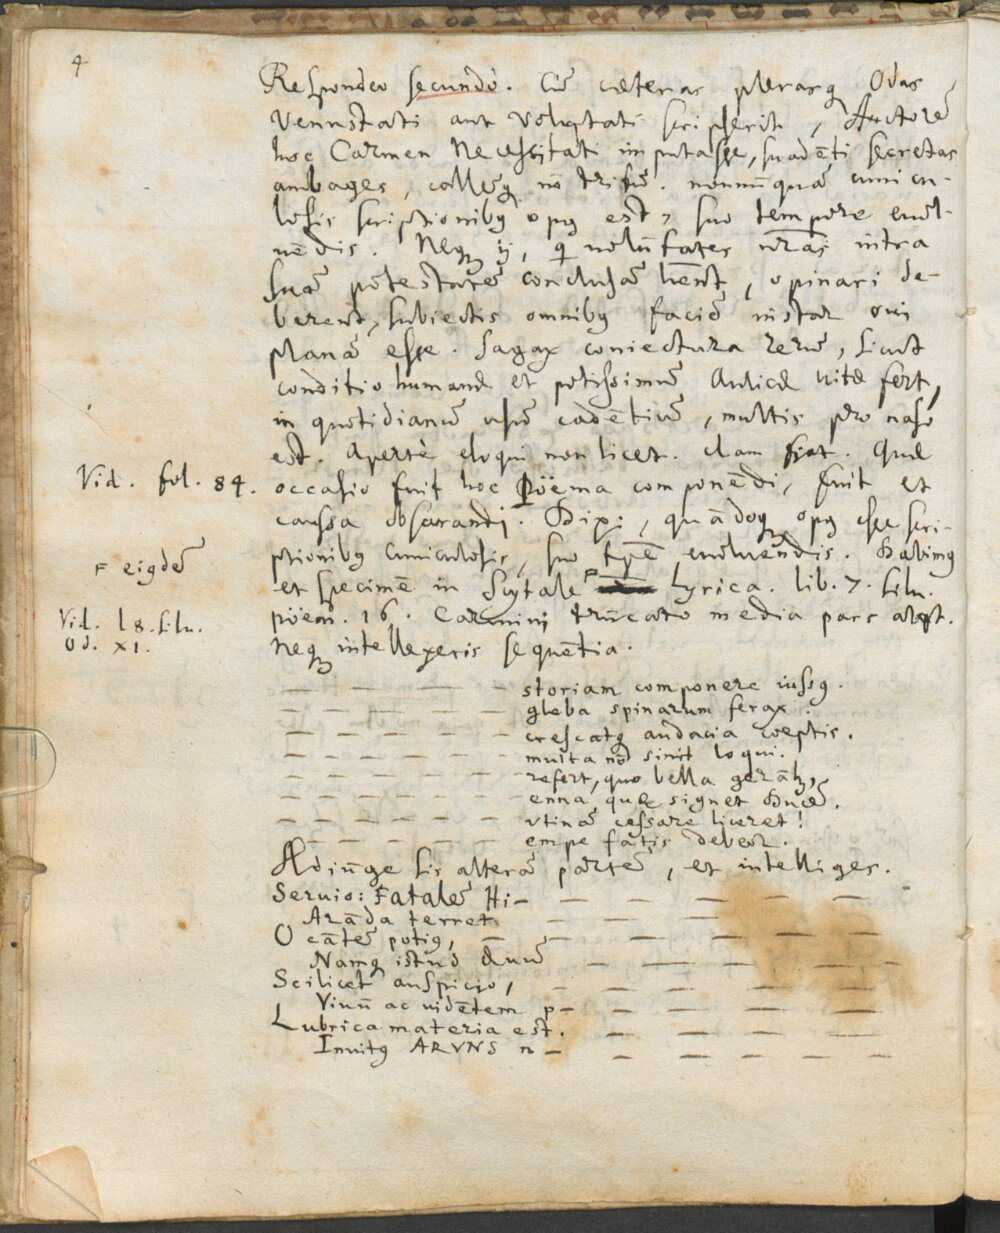 4
Respondeo secundò. Cū cæteras plerasq Odas
Venustati aut Voluptati scripserit, Auctorē
hoc Carmen Necessitati imputasse, suadēti secretas
ambages, colleg. nō
nonnūquā cunicu-
losis scriptionibꝫ opꝫ est, suo tempore euol-
uēdis. Neqꝫ ij, q uolūtates nr̄as intra
suā potestatē conclusā hēnt, opinari de-
berent, subiectis omnibꝫ faciē instar oui
planā esse. Sagax coniectura rerū, sicut
conditio humanæ et potissimū Aulicæ uitæ fert,
in quotidianū usū cadētiū, multis pro naso
est. Apertè eloqui non licet. clam fiat. Quæ
Vid. fol. 84. occasio fuit hoc Poëma componēdi, fuit et
caussa obscurandi. Dixi, quādoqꝫ opꝫ esse scri-
ptionibꝫ cuniculosis, suo tp̄e euoluēdis. Habimꝫ
F eigdē
et specimē in Scytale F Lyrica. lib. 7. Silu.
Vid. l 8. Silu.
Od. XI.
poëm. 16. Carmini trūcato media pars abest.
neqꝫ intellexeris sequētia.
— — — — — storiam componere iussꝫ.
— — — — — gleba spinarum ferax.
— — — — — crescatqꝫ audacia cœptis.
— — — — — multa nō sinit loqui.
— — — — — refert, quo bella gerātꝫ,
— — — — — enna, quæ signet Ducē.
— — — — — vtinā cessare liceret!
— — — — — empe fatis debeor.
Adiūge his alterā partē, et intelliges.
Seruio: Fatalē Hi- — — — — —
Arāda terret — — — — —
O cātē potiꝫ, — — — — — —
Namqꝫ istud æuū — — — — —
Scilicet auspicio, — — — — —
Viuū ac uidētem p- — — — — —
Lubrica materia est. — — — — —
Inuitꝫ ARVNS n- — — — — —